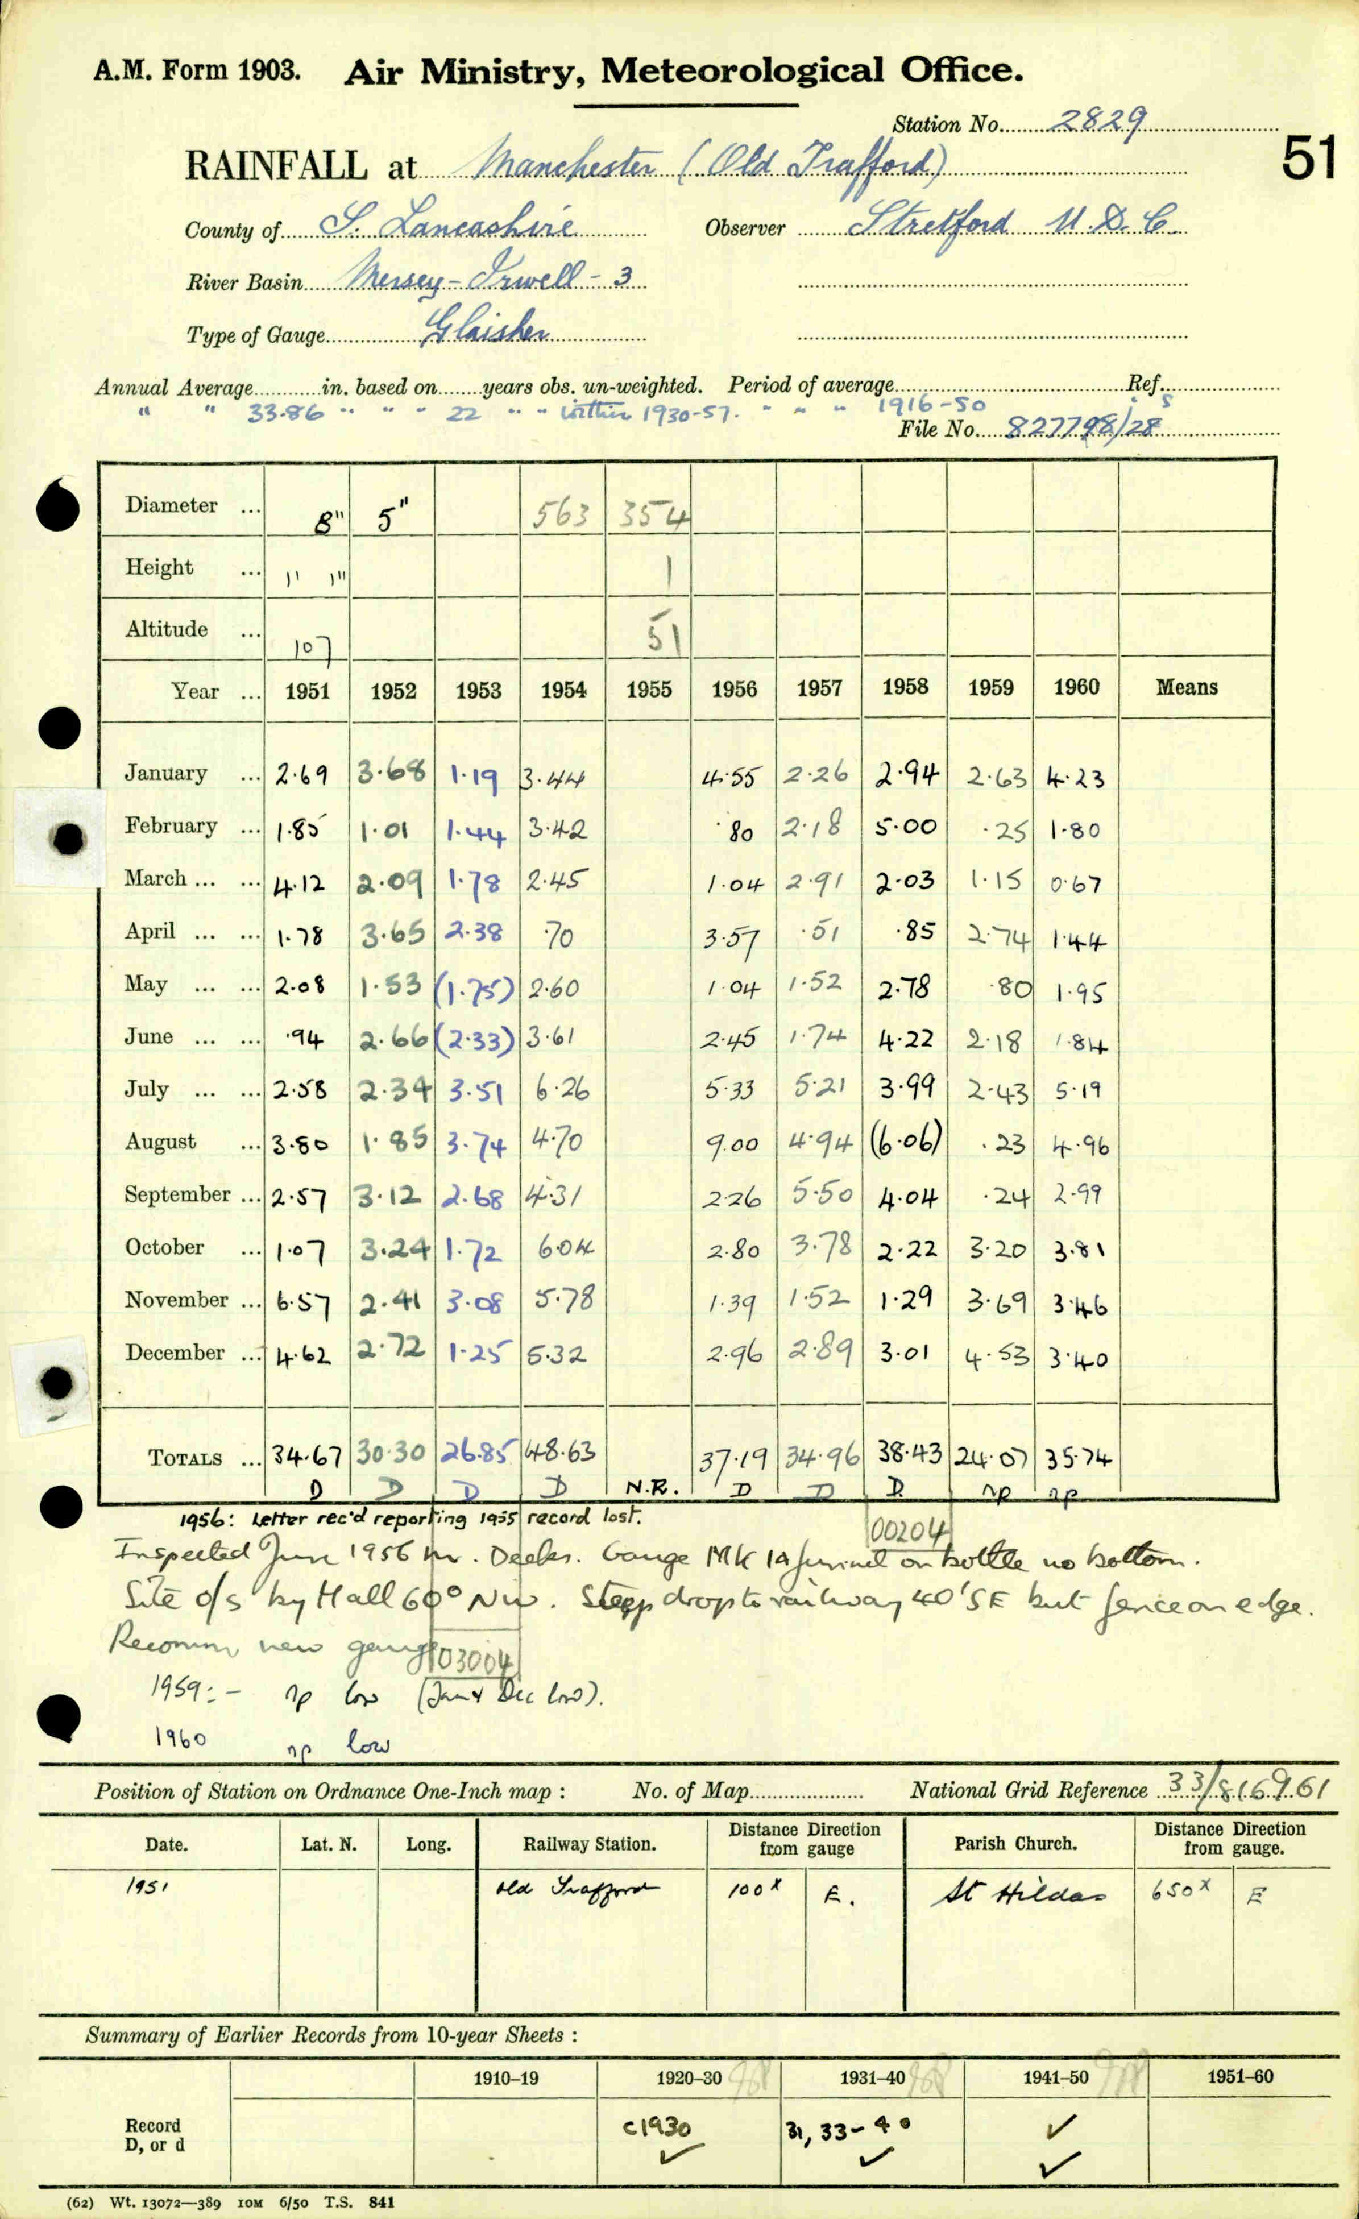 A.M. Form 1903. Air Ministry, Meteorological Office.
Station No. 2829
51
RAINFALL at Manchester (Old Trafford)
County of S. Lancashire Observer Stretford U.D.C.
River Basin Mersey-Irwell-3
Type of Gauge Glaisher
Annual Average in. based on years obs. un-weighted. Period of average Ref.
" " 33.86 " " " 22 " " within 1930-57. " " " 1916-50
File No. 827798/28
Diameter ... 8" 5" 563 354
Height ... 1' 1" 1
Altitude ... 107 51
Year ... 1951 1952 1953 1954 1955 1956 1957 1958 1959 1960 Means
January ... 2.69 3.68 1.19 3.44 4.55 2.26 2.94 2.63 4.23
February ... 1.85 1.01 1.44 3.42 .80 2.18 5.00 .25 1.80
March ... ... 4.12 2.09 1.78 2.45 1.04 2.91 2.03 1.15 0.67
April ... ... 1.78 3.65 2.38 .70 3.57 .51 .85 2.74 1.44
May ... ... 2.08 1.53 (1.75) 2.60 1.04 1.52 2.78 .80 1.95
June ... ... .94 2.66 (2.33) 3.61 2.45 1.74 4.22 2.18 1.84
July ... ... 2.58 2.34 3.51 6.26 5.33 5.21 3.99 2.43 5.19
August ... 3.80 1.85 3.74 4.70 9.00 4.94 (6.06) .23 4.96
September ... 2.57 3.12 2.68 4.31 2.26 5.50 4.04 .24 2.99
October ... 1.07 3.24 1.72 6.04 2.80 3.78 2.22 3.20 3.81
November ... 6.57 2.41 3.08 5.78 1.39 1.52 1.29 3.69 3.46
December ... 4.62 2.72 1.25 5.32 2.96 2.89 3.01 4.53 3.40
TOTALS ... 34.67 30.30 26.85 48.63 37.19 34.96 38.43 24.07 35.74
D D D D N.R. D D D np np
1956: Letter rec'd reporting 1955 record lost.
00204
Inspected June 1956 Mr. Gauge MK 1A funnel on bottle no bottom.
Site o/s by Hall 60° NW. Steep drop to railway 40' SE but fence on edge.
Recomm new gauge
03004
1959:- np low (Jan & Dec low).
1960 np low
Position of Station on Ordnance One-Inch map : No. of Map National Grid Reference 33/816961
Date. Lat. N. Long. Railway Station. Distance from Direction gauge Parish Church. Distance from Direction gauge.
1951 Old Trafford 100x E. St Hildas 650x E
Summary of Earlier Records from 10-year Sheets :
1910–19 1920–30 1931–40 1941–50 1951–60
Record
D, or d c1930 ✓ 31, 33-40 ✓ ✓ ✓
(62) Wt. 13072—389 10M 6/50 T.S. 841